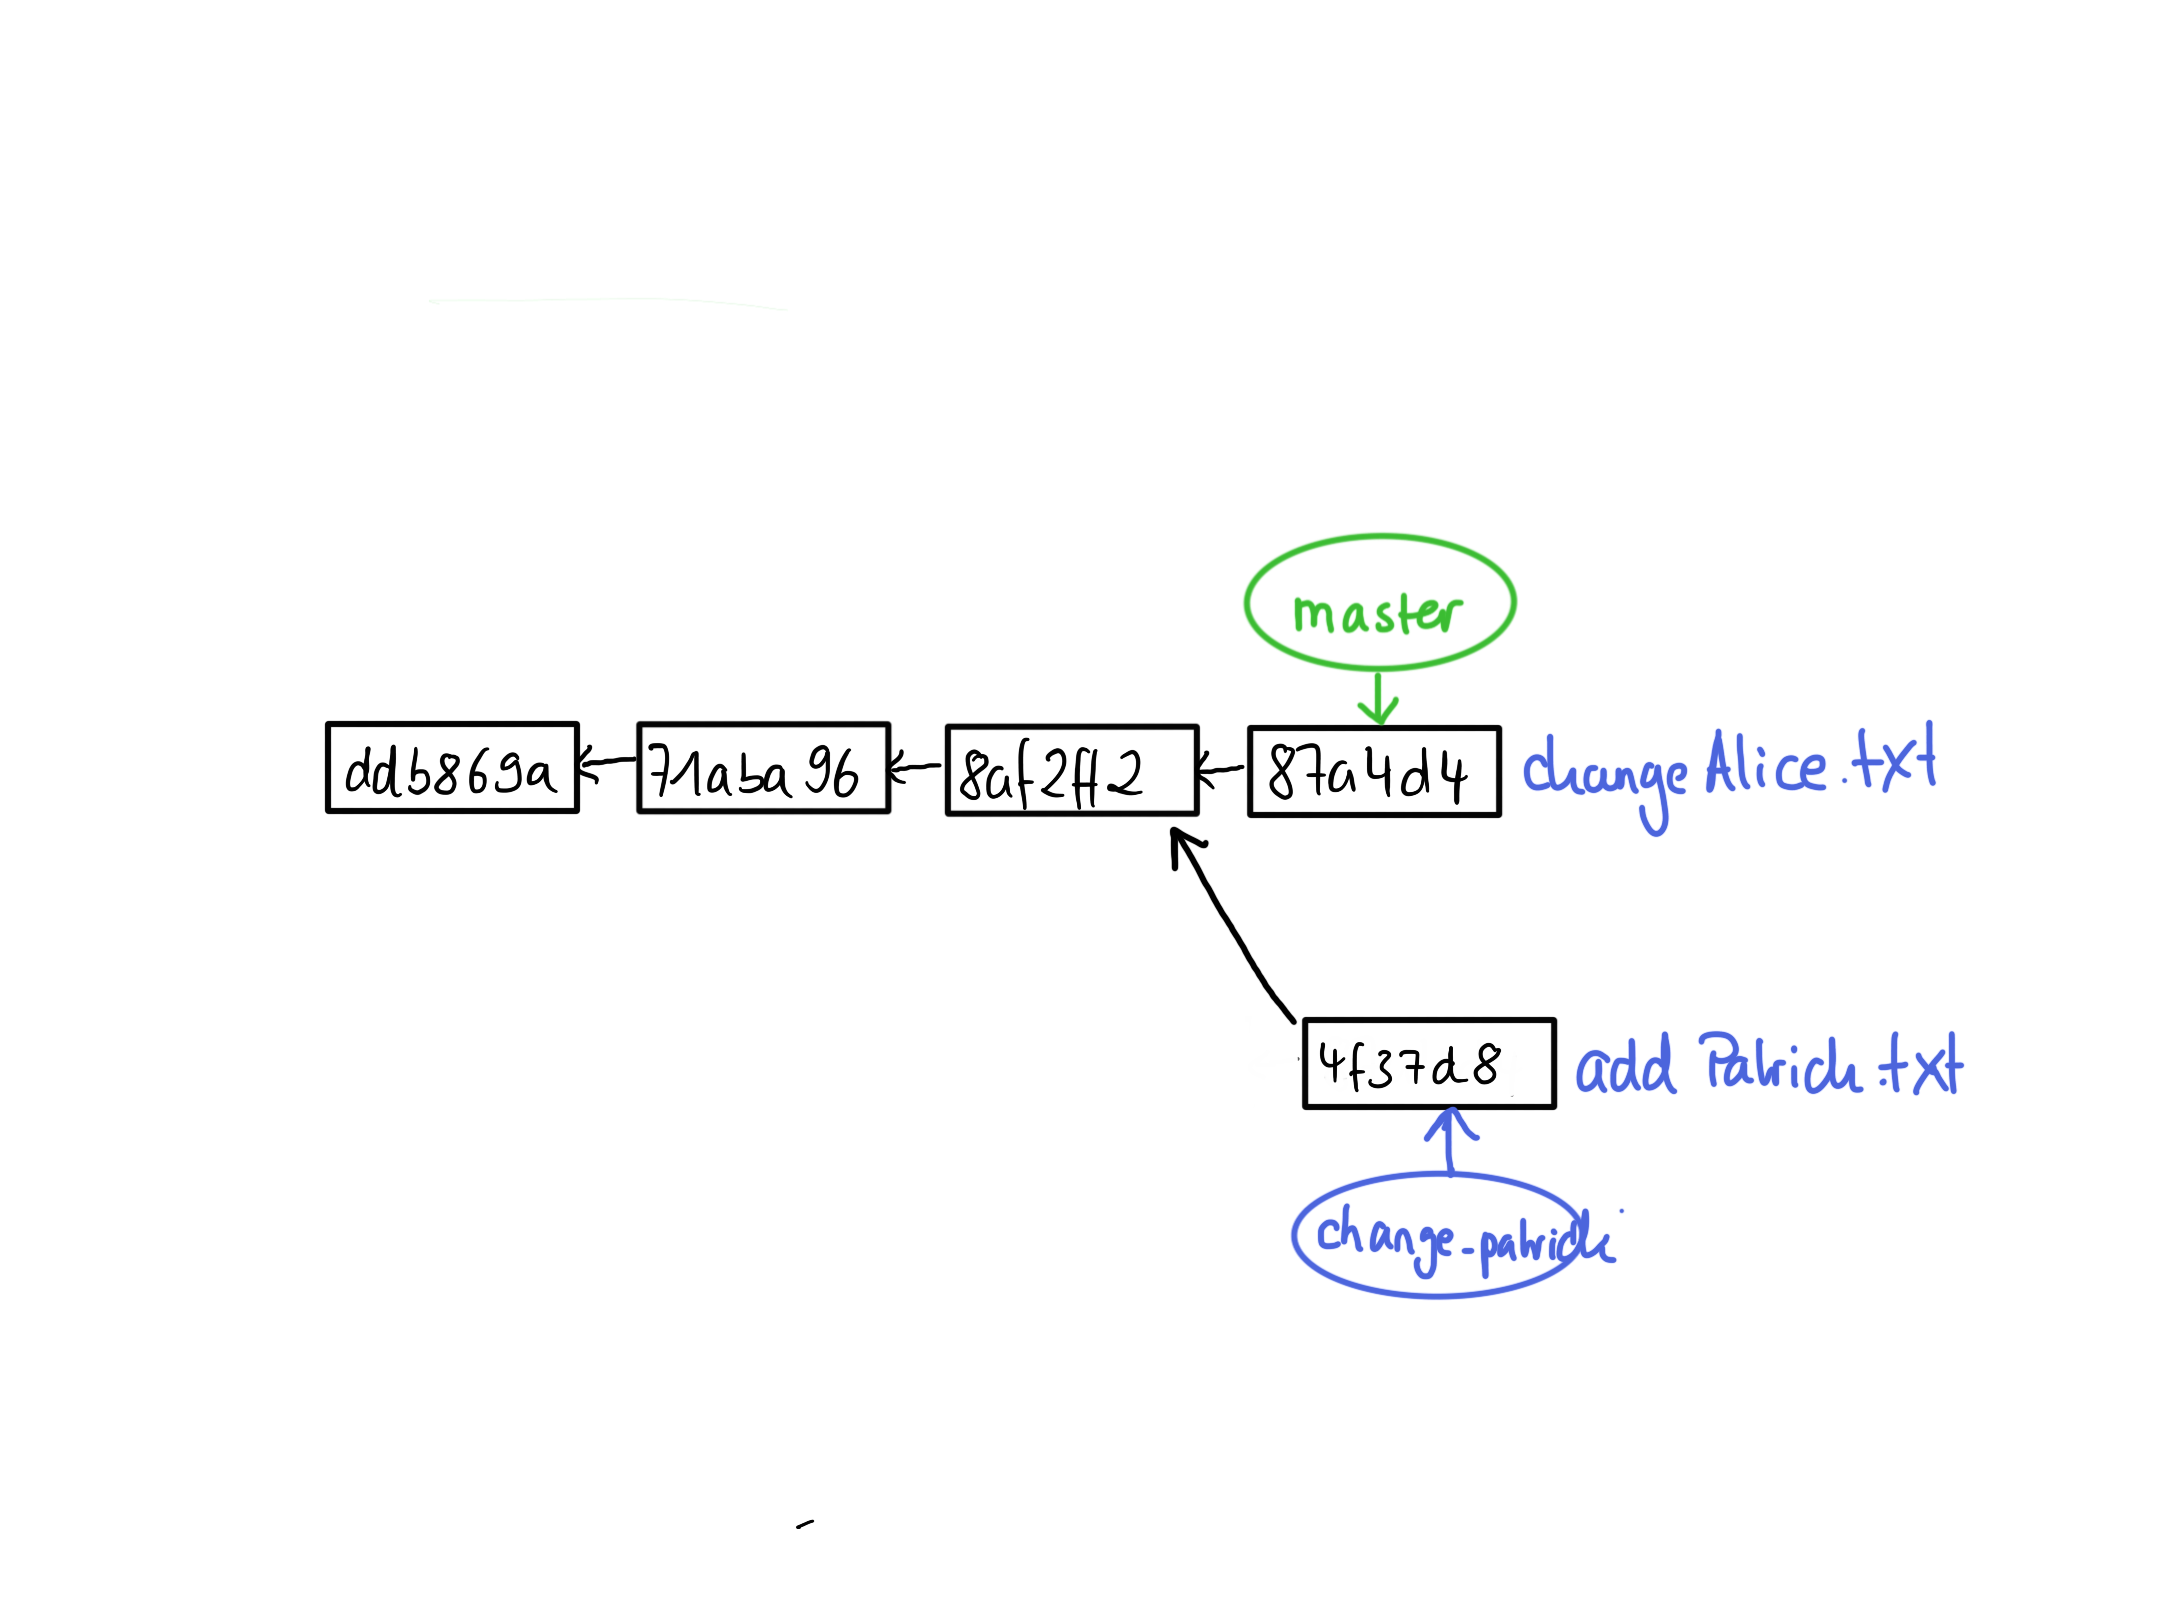 master
ddb869a
71aba96
8af2ff2
87a4d4
change Alice.txt
4f37d8
add Patrick.txt
change_patrick